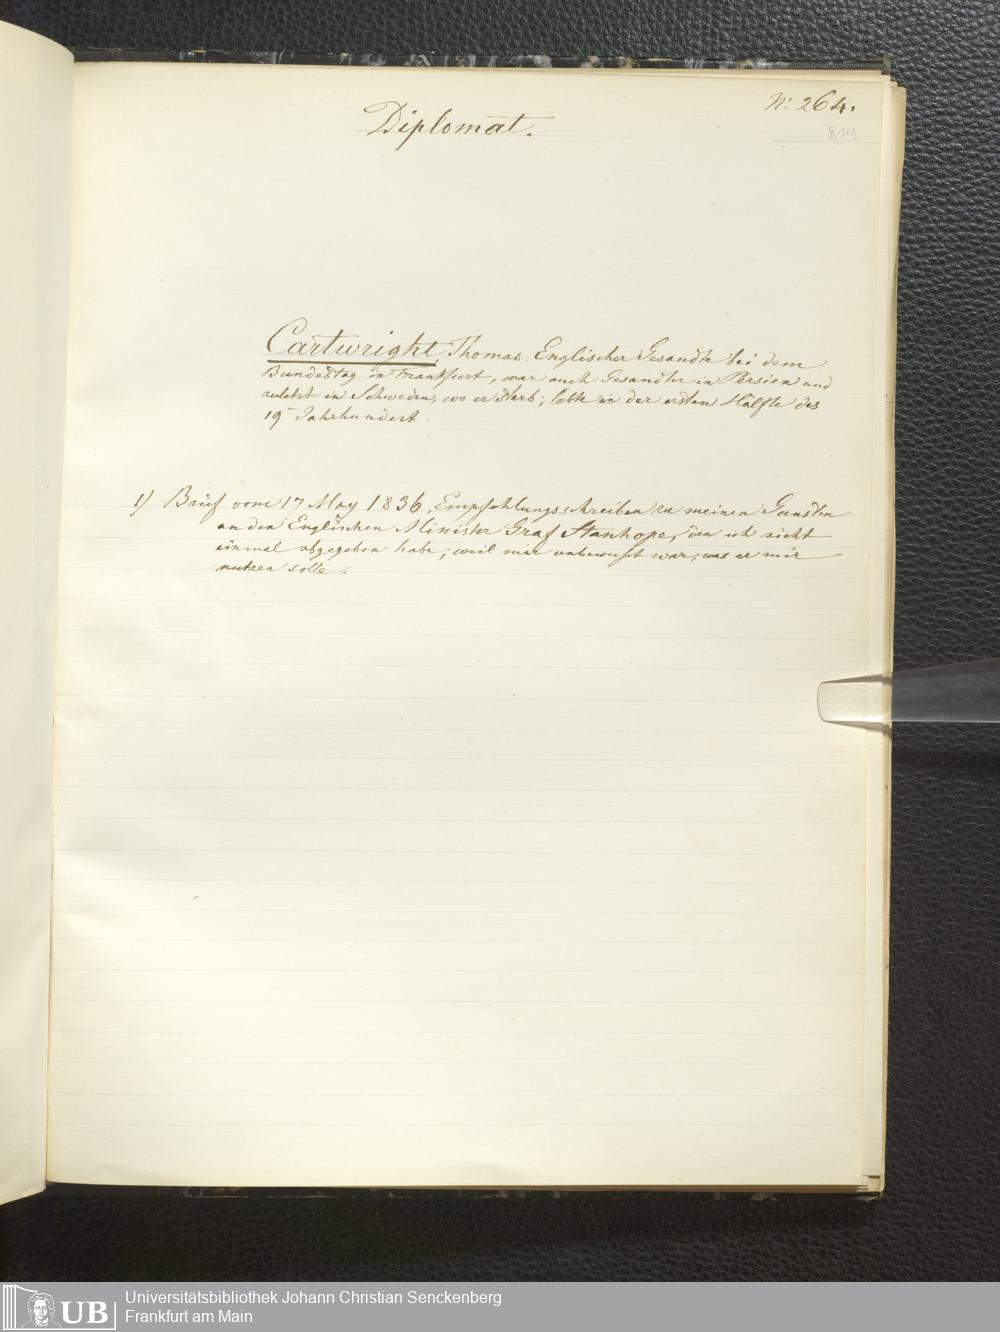 Diplomat.
N: 264.
819
Cartwright, Thomas. Englischer Gesandte bei dem
Bundestag in Frankfurt, war auch Gesandter in Persien und
zuletzt in Schweden, wo er starb; lebte in der ersten Hälfte des
19ᵗ Jahrhundert.
1) Brief vom 17 May 1836, Empfehlungsschreiben zu meinen Gunsten
an den Englischen Minister Graf Stanhope, den ich nicht
einmal abgegeben habe, weil mir unbewusst war, was er mir
nutzen solle.
UB
Universitätsbibliothek Johann Christian Senckenberg
Frankfurt am Main